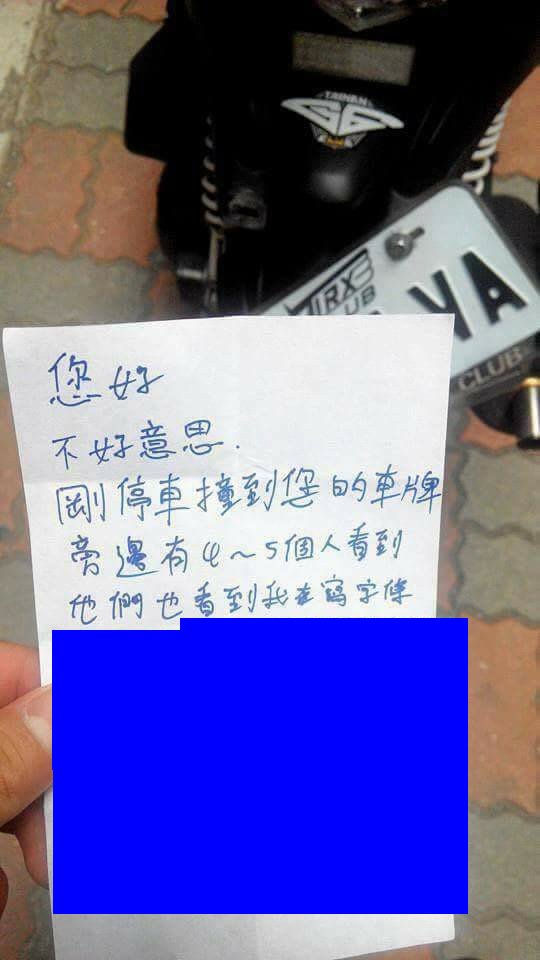 TAIWAN
G6
RX
UB
VA
CLUB
您好
不好意思.
剛停車撞到您的車牌
旁邊有4~5個人看到
他們也看到我在寫字條